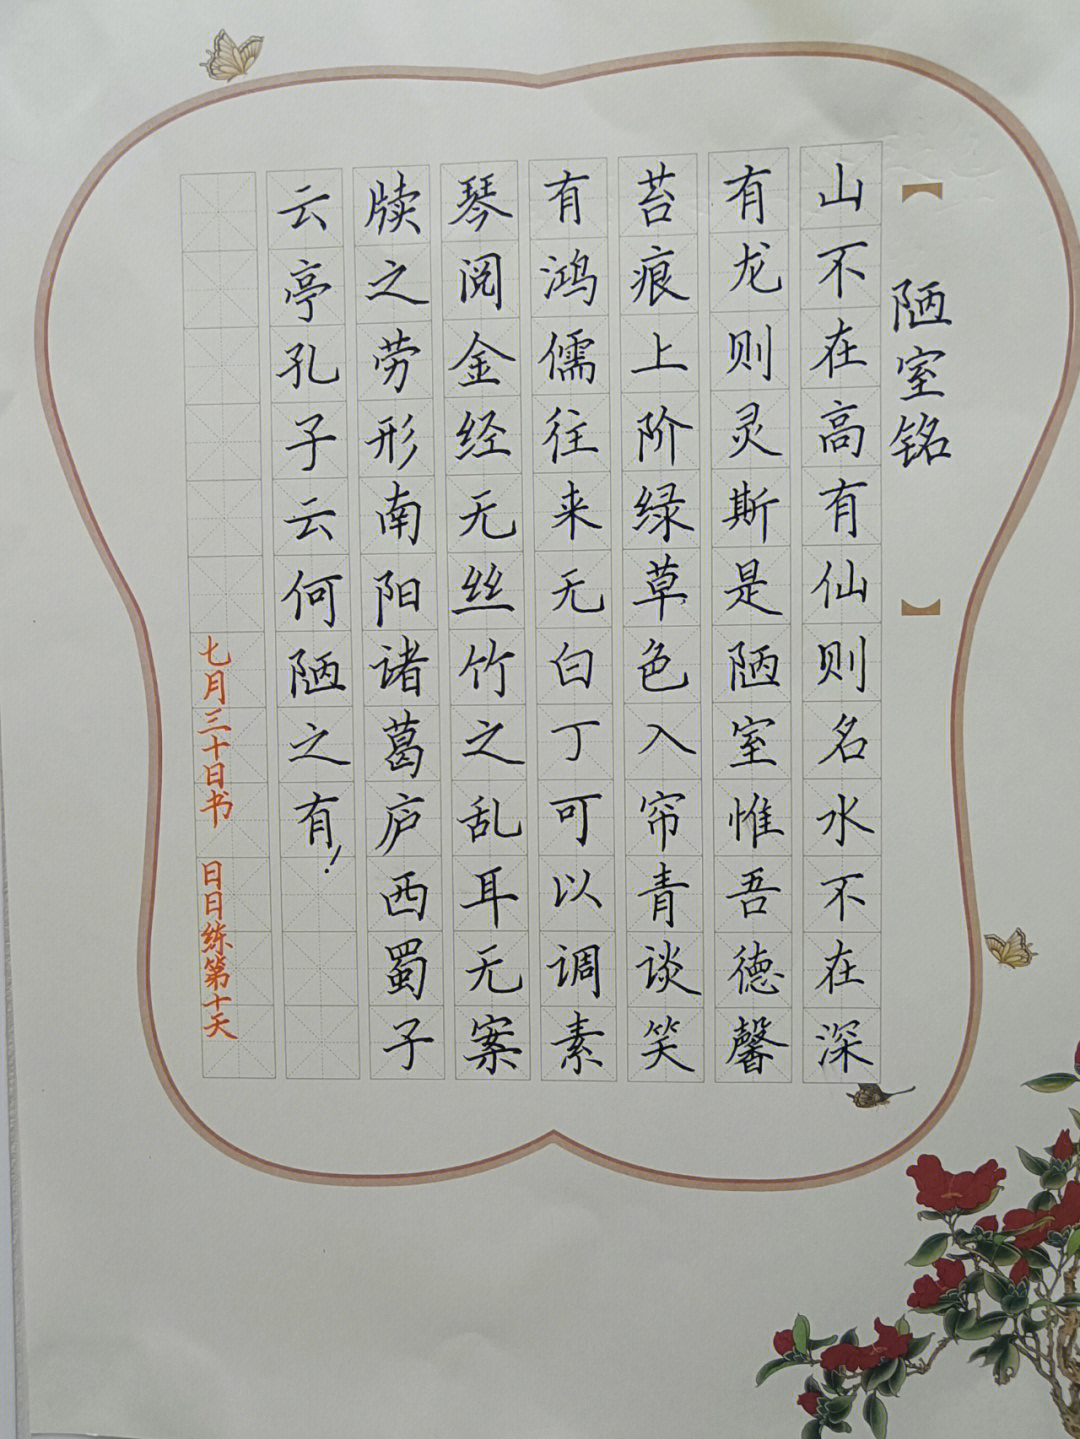 【陋室铭】
山不在高有仙则名水不在深
有龙则灵斯是陋室惟吾德馨
苔痕上阶绿草色入帘青谈笑
有鸿儒往来无白丁可以调素
琴阅金经无丝竹之乱耳无案
牍之劳形南阳诸葛庐西蜀子
云亭孔子云何陋之有!
七月三十日书 日日练第十天